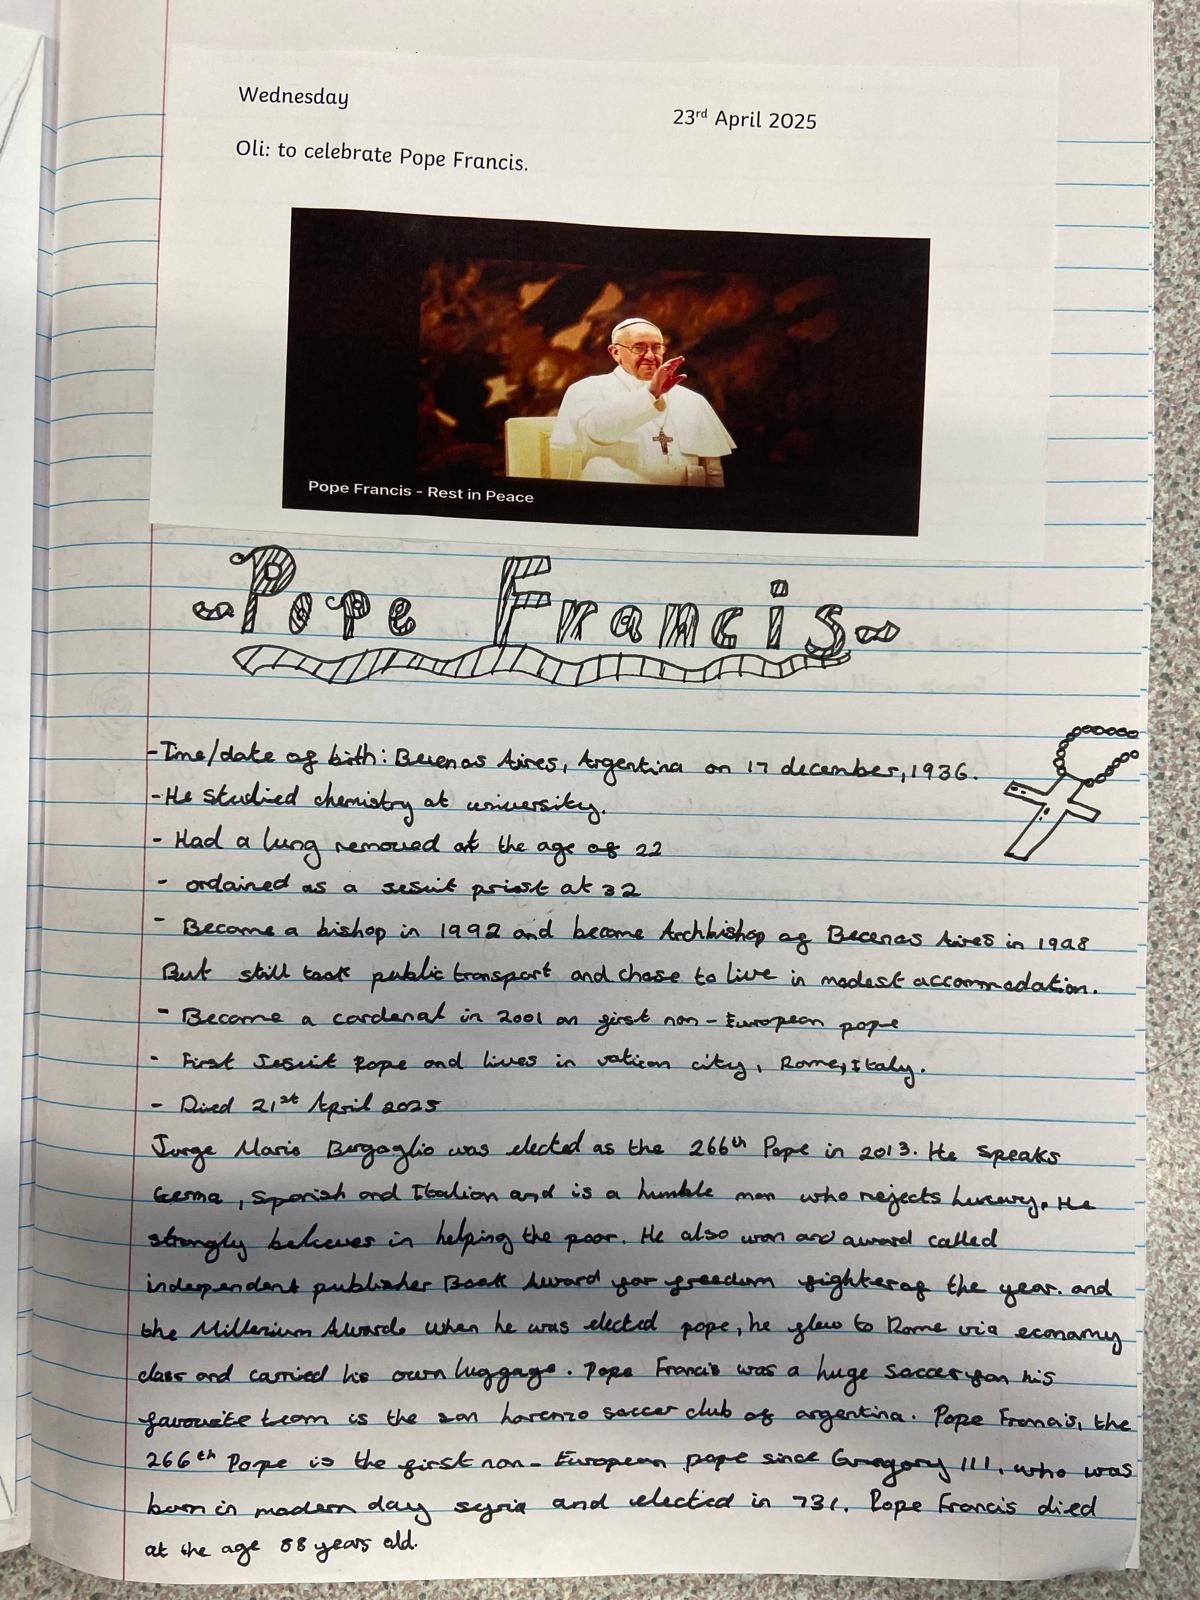 Wednesday
23rd April 2025
Oli: to celebrate Pope Francis.
Pope Francis - Rest in Peace
Pope Francis
-Time/date of birth: Beuenos Aires, Argentina on 17 december, 1936.
-He studied chemistry at university.
- Had a lung removed at the age of 22
- ordained as a sesuit priest at 32
- Became a bishop in 1992 and become Archbishop of Beuenos Aires in 1998
But still took public transport and chose to live in modest accommodation.
- Become a cardenal in 2001 an first non-European pope
- First Jesuit Pope and lives in vatican city, Rome, Italy.
- Died 21st April 2025
Jorge Mario Bergoglio was elected as the 266th Pope in 2013. He speaks
Germa, Spanish and Italian and is a humble man who rejects luxury. He
strongly believes in helping the poor. He also won an award called
independent publisher Book Award for freedom fighter of the year. and
the Millenium Award. when he was elected pope, he flew to Rome via economy
class and carried his own luggage. Pope Francis was a huge soccer fan his
favourite team is the san Lorenzo soccer club of argentina. Pope Francis, the
266th Pope is the first non-European pope since Gregory III, who was
born in modern day syria and elected in 731. Pope Francis died
at the age 88 years old.